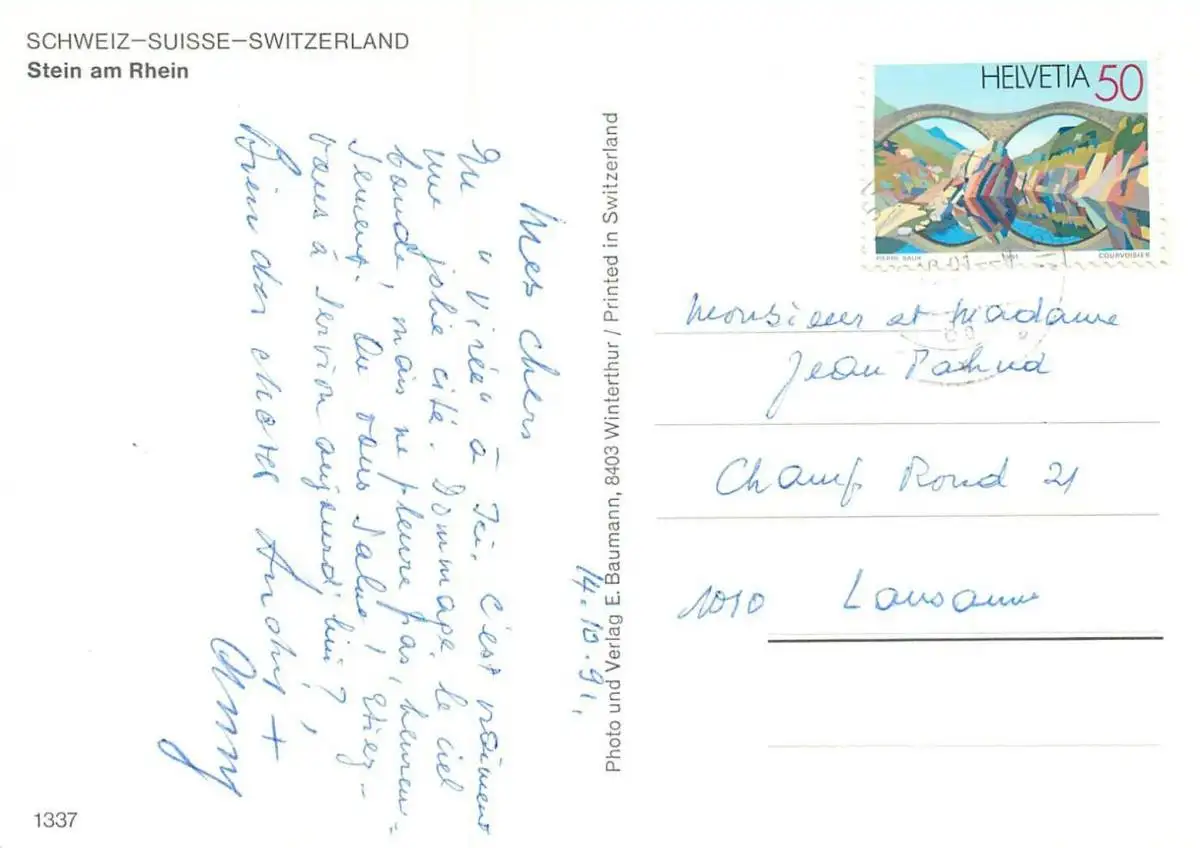 SCHWEIZ–SUISSE–SWITZERLAND
Stein am Rhein
14.10.91.
Mes chers
En "Virée" à Ici. C'est vraiment
une jolie cité. Dommage le ciel
boude, mais ne pleure pas, heureu-
sement. On vous salue! Etiez-
vous à Servion aujourd'hui?
Bien des choses Andry +
Photo und Verlag E. Baumann, 8403 Winterthur / Printed in Switzerland
HELVETIA 50
1991
COURVOISIER
Monsieur et Madame
Jean Pahud
Champ Rond 21
1010 Lausanne
1337